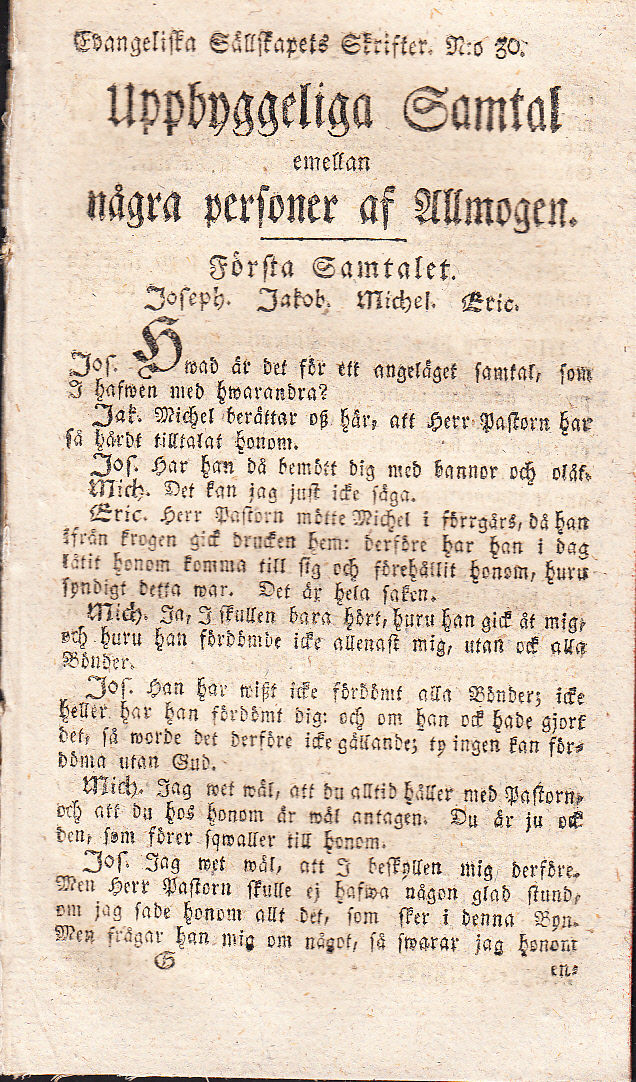 Evangeliska Sällskapets Skrifter. N:o 30.
Uppbyggeliga Samtal
emellan
några personer af Allmogen.
Första Samtalet.
Joseph. Jakob. Michel. Eric.
Jos. Hwad är det för ett angeläget samtal, som
I hafwen med hwarandra?
Jak. Michel berättar oß här, att Herr Pastorn har
så hårdt tilltalat honom.
Jos. Har han då bemött dig med bannor och olåt.
Mich. Det kan jag just icke säga.
Eric. Herr Pastorn mötte Michel i förrgårs, då han
ifrån krogen gick drucken hem: derföre har han i dag
låtit honom komma till sig och förehållit honom, huru
syndigt detta war. Det är hela saken.
Mich. Ja, I skullen bara hört, huru han gick åt mig,
och huru han fördömde icke allenast mig, utan ock alla
Bönder.
Jos. Han har wißt icke fördömt alla Bönder; icke
heller har han fördömt dig: och om han ock hade gjort
det, så worde det derföre icke gällande; ty ingen kan för-
döma utan Gud.
Mich. Jag wet wäl, att du alltid håller med Pastorn,
och att du hos honom är wäl antagen. Du är ju ock
den, som förer sqwaller till honom.
Jos. Jag wet wäl, att I beskyllen mig derföre.
Men Herr Pastorn skulle ej hafwa någon glad stund,
om jag sade honom allt det, som sker i denna Byn.
Men frågar han mig om något, så swarar jag honom
G en-